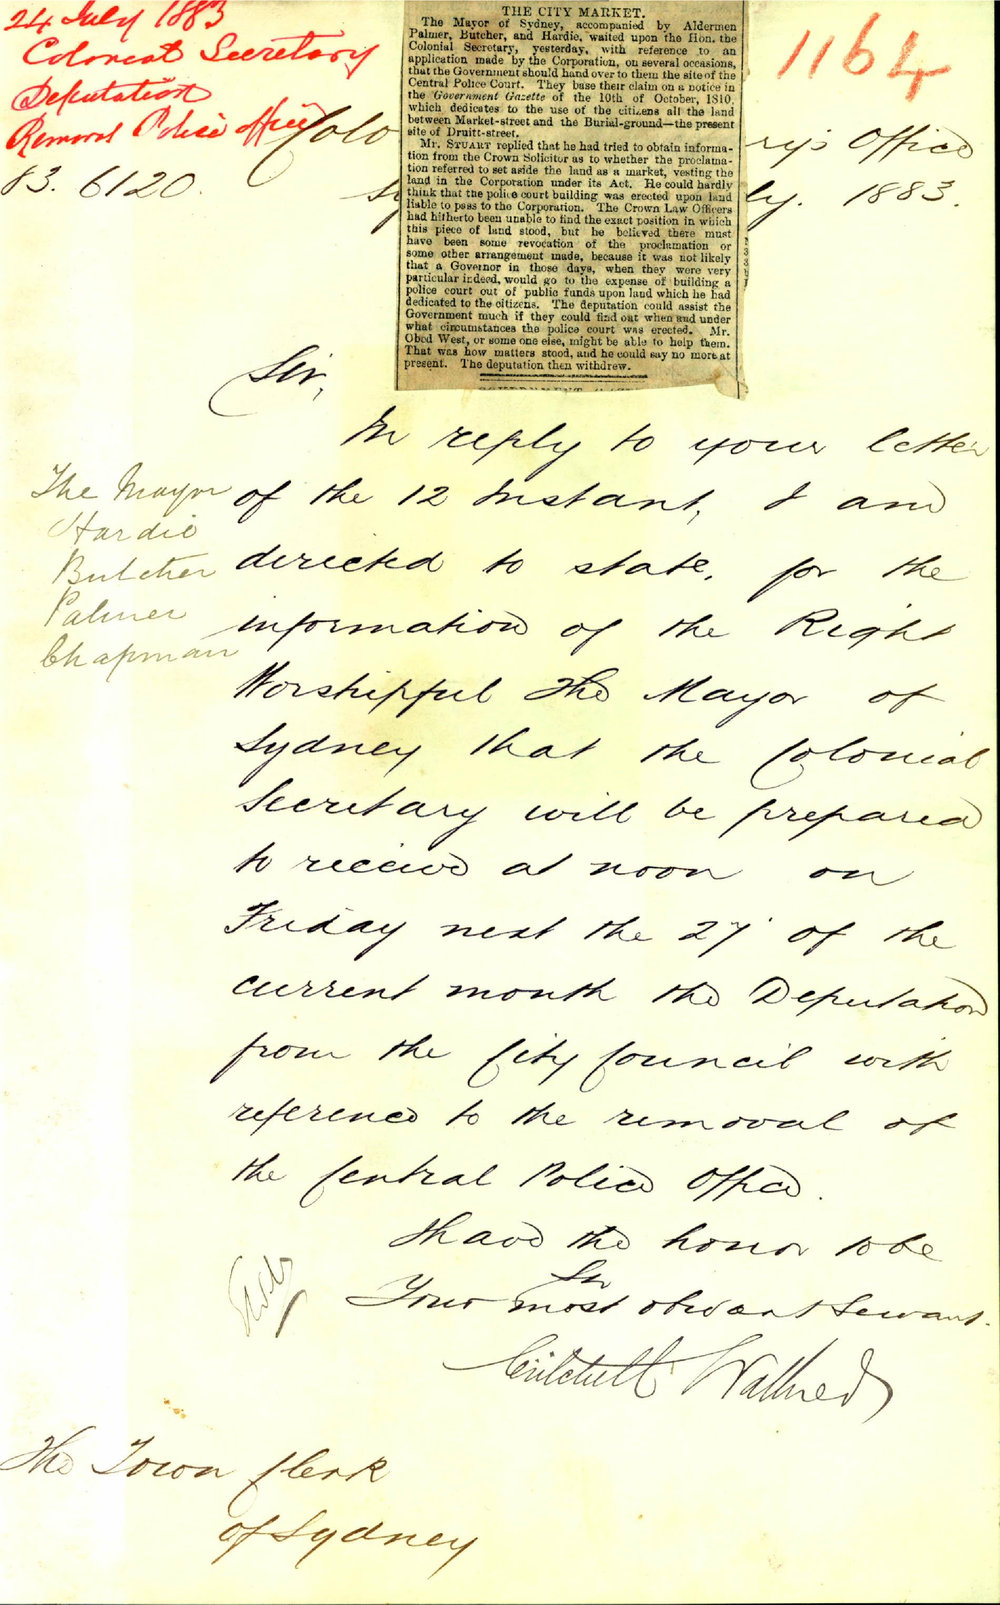 24 July 1883
Colonial Secretary
Deputation
Removal Police Office
1164
83. 6120.
Colo
ry's Office
Sy
ly. 1883.
THE CITY MARKET.
The Mayor of Sydney, accompanied by Aldermen
Palmer, Butcher, and Hardie, waited upon the Hon. the
Colonial Secretary, yesterday, with reference to an
application made by the Corporation, on several occasions,
that the Government should hand over to them the site of the
Central Police Court. They base their claim on a notice in
the Government Gazette of the 10th of October, 1810,
which dedicates to the use of the citizens all the land
between Market-street and the Burial-ground—the present
site of Druitt-street.
Mr. STUART replied that he had tried to obtain informa-
tion from the Crown Solicitor as to whether the proclama-
tion referred to set aside the land as a market, vesting the
land in the Corporation under its Act. He could hardly
think that the police court building was erected upon land
liable to pass to the Corporation. The Crown Law Officers
had hitherto been unable to find the exact position in which
this piece of land stood, but he believed there must
have been some revocation of the proclamation or
some other arrangement made, because it was not likely
that a Governor in those days, when they were very
particular indeed, would go to the expense of building a
police court out of public funds upon land which he had
dedicated to the citizens. The deputation could assist the
Government much if they could find out when and under
what circumstances the police court was erected. Mr.
Obed West, or some one else, might be able to help them.
That was how matters stood, and he could say no more at
present. The deputation then withdrew.
Sir,
In reply to your letter
of the 12 Instant, I am
directed to state, for the
information of the Right
Worshipful The Mayor of
Sydney that the Colonial
Secretary will be prepared
to receive at noon on
Friday next the 27 of the
current month the Deputation
from the City Council with
reference to the removal of
the Central Police Office.
The Mayor
Hardie
Butcher
Palmer
Chapman
I have the honor to be
Sir
Your most obedient Servant.
Critchett Walker
The Town Clerk
of Sydney